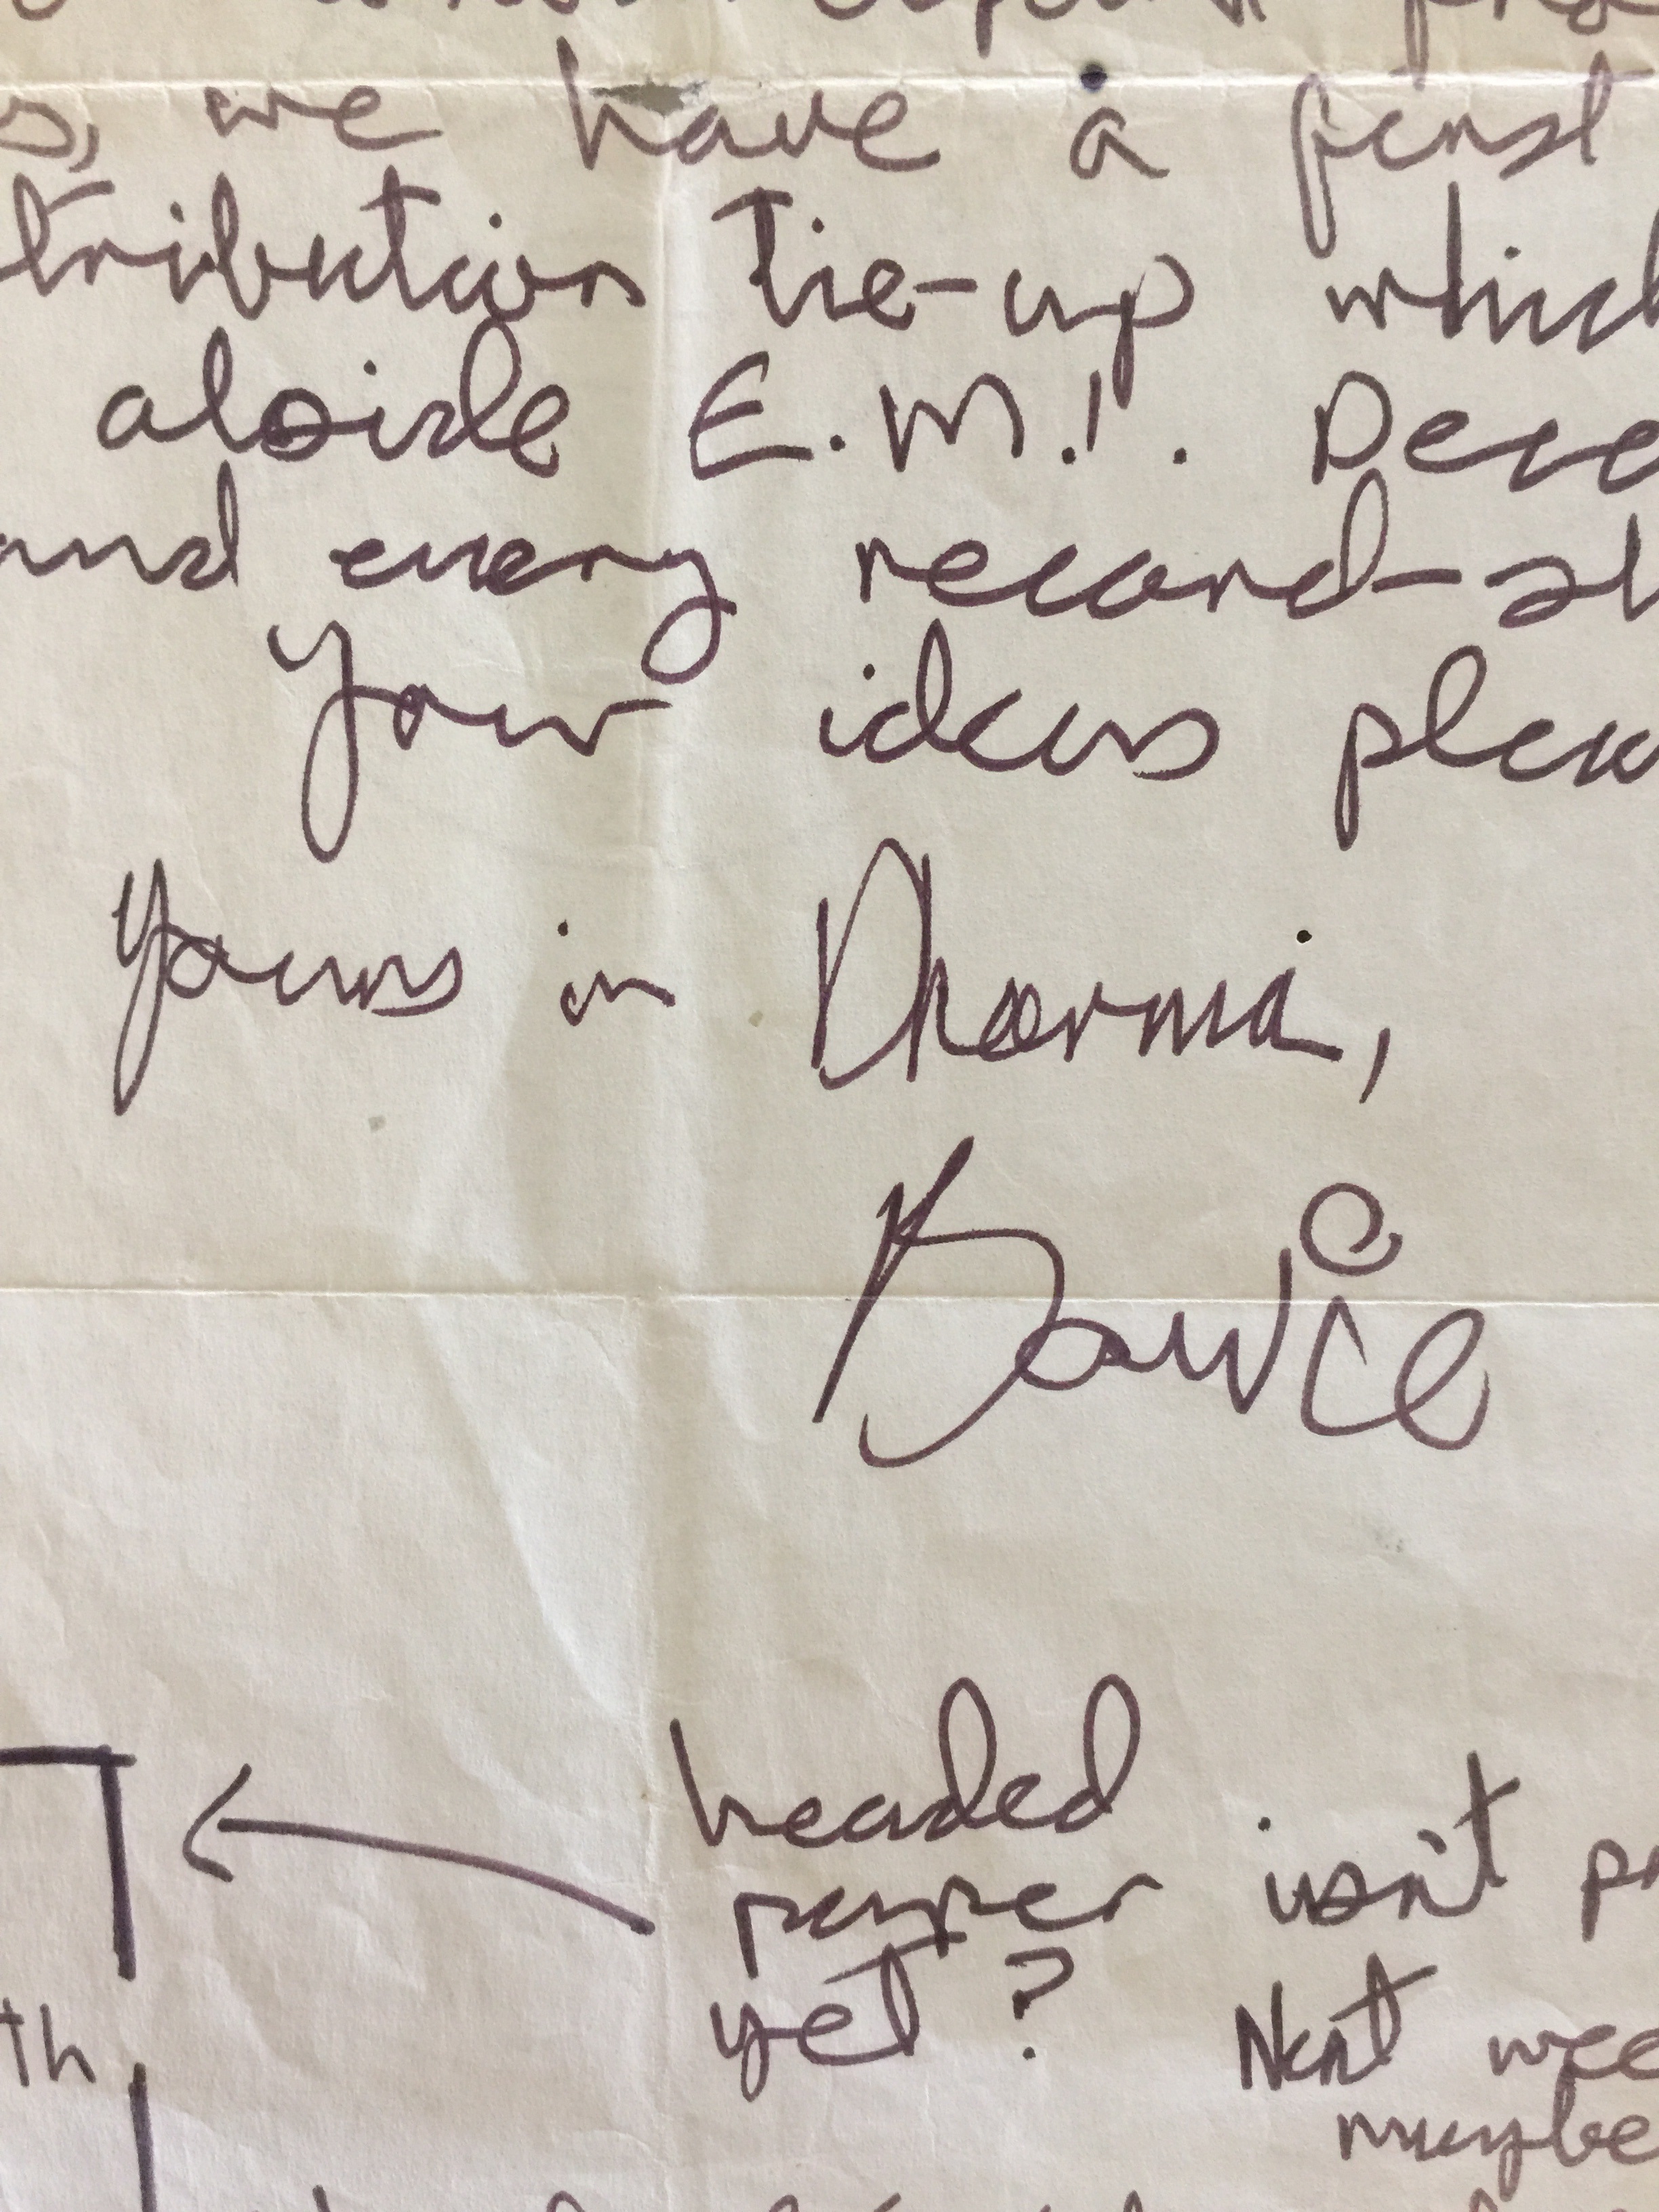 s, we have a first
tribution tie-up which
aloside E.M.I. Dece
and every record-sh
your ideas pleas
Yours in Dharma,
Bowie
headed
paper isn't pr
yet? Next wee
th maybe